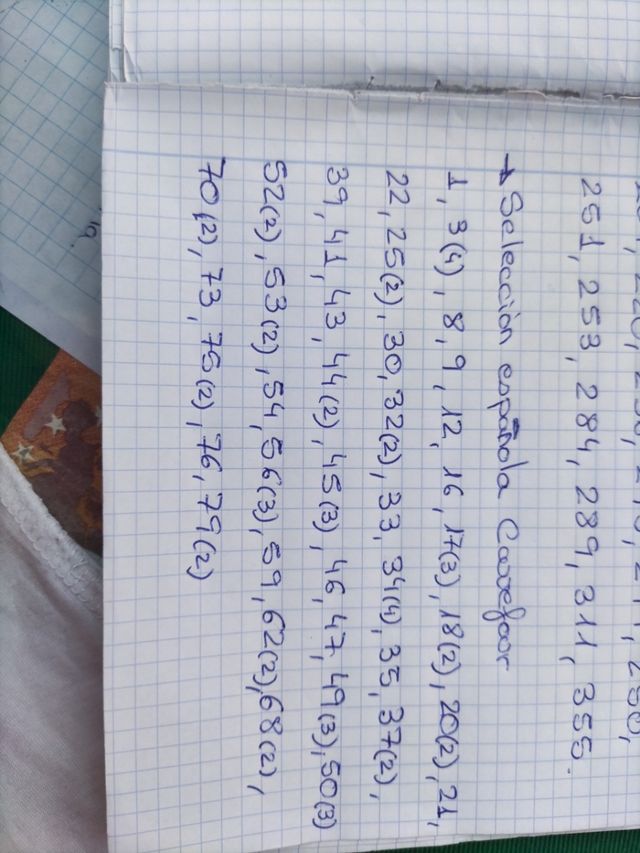 251, 253, 284, 289, 311, 355.
→ Selección española Carrefour
1, 3(4), 8, 9, 12, 16, 17(3), 18(2), 20(2), 21,
22, 25(2), 30, 32(2), 33, 34(4), 35, 37(2),
39, 41, 43, 44(2), 45(3), 46, 47, 49(3), 50(3)
52(2), 53(2), 54, 56(3), 59, 62(2), 68(2),
70(2), 73, 75(2), 76, 79(2)